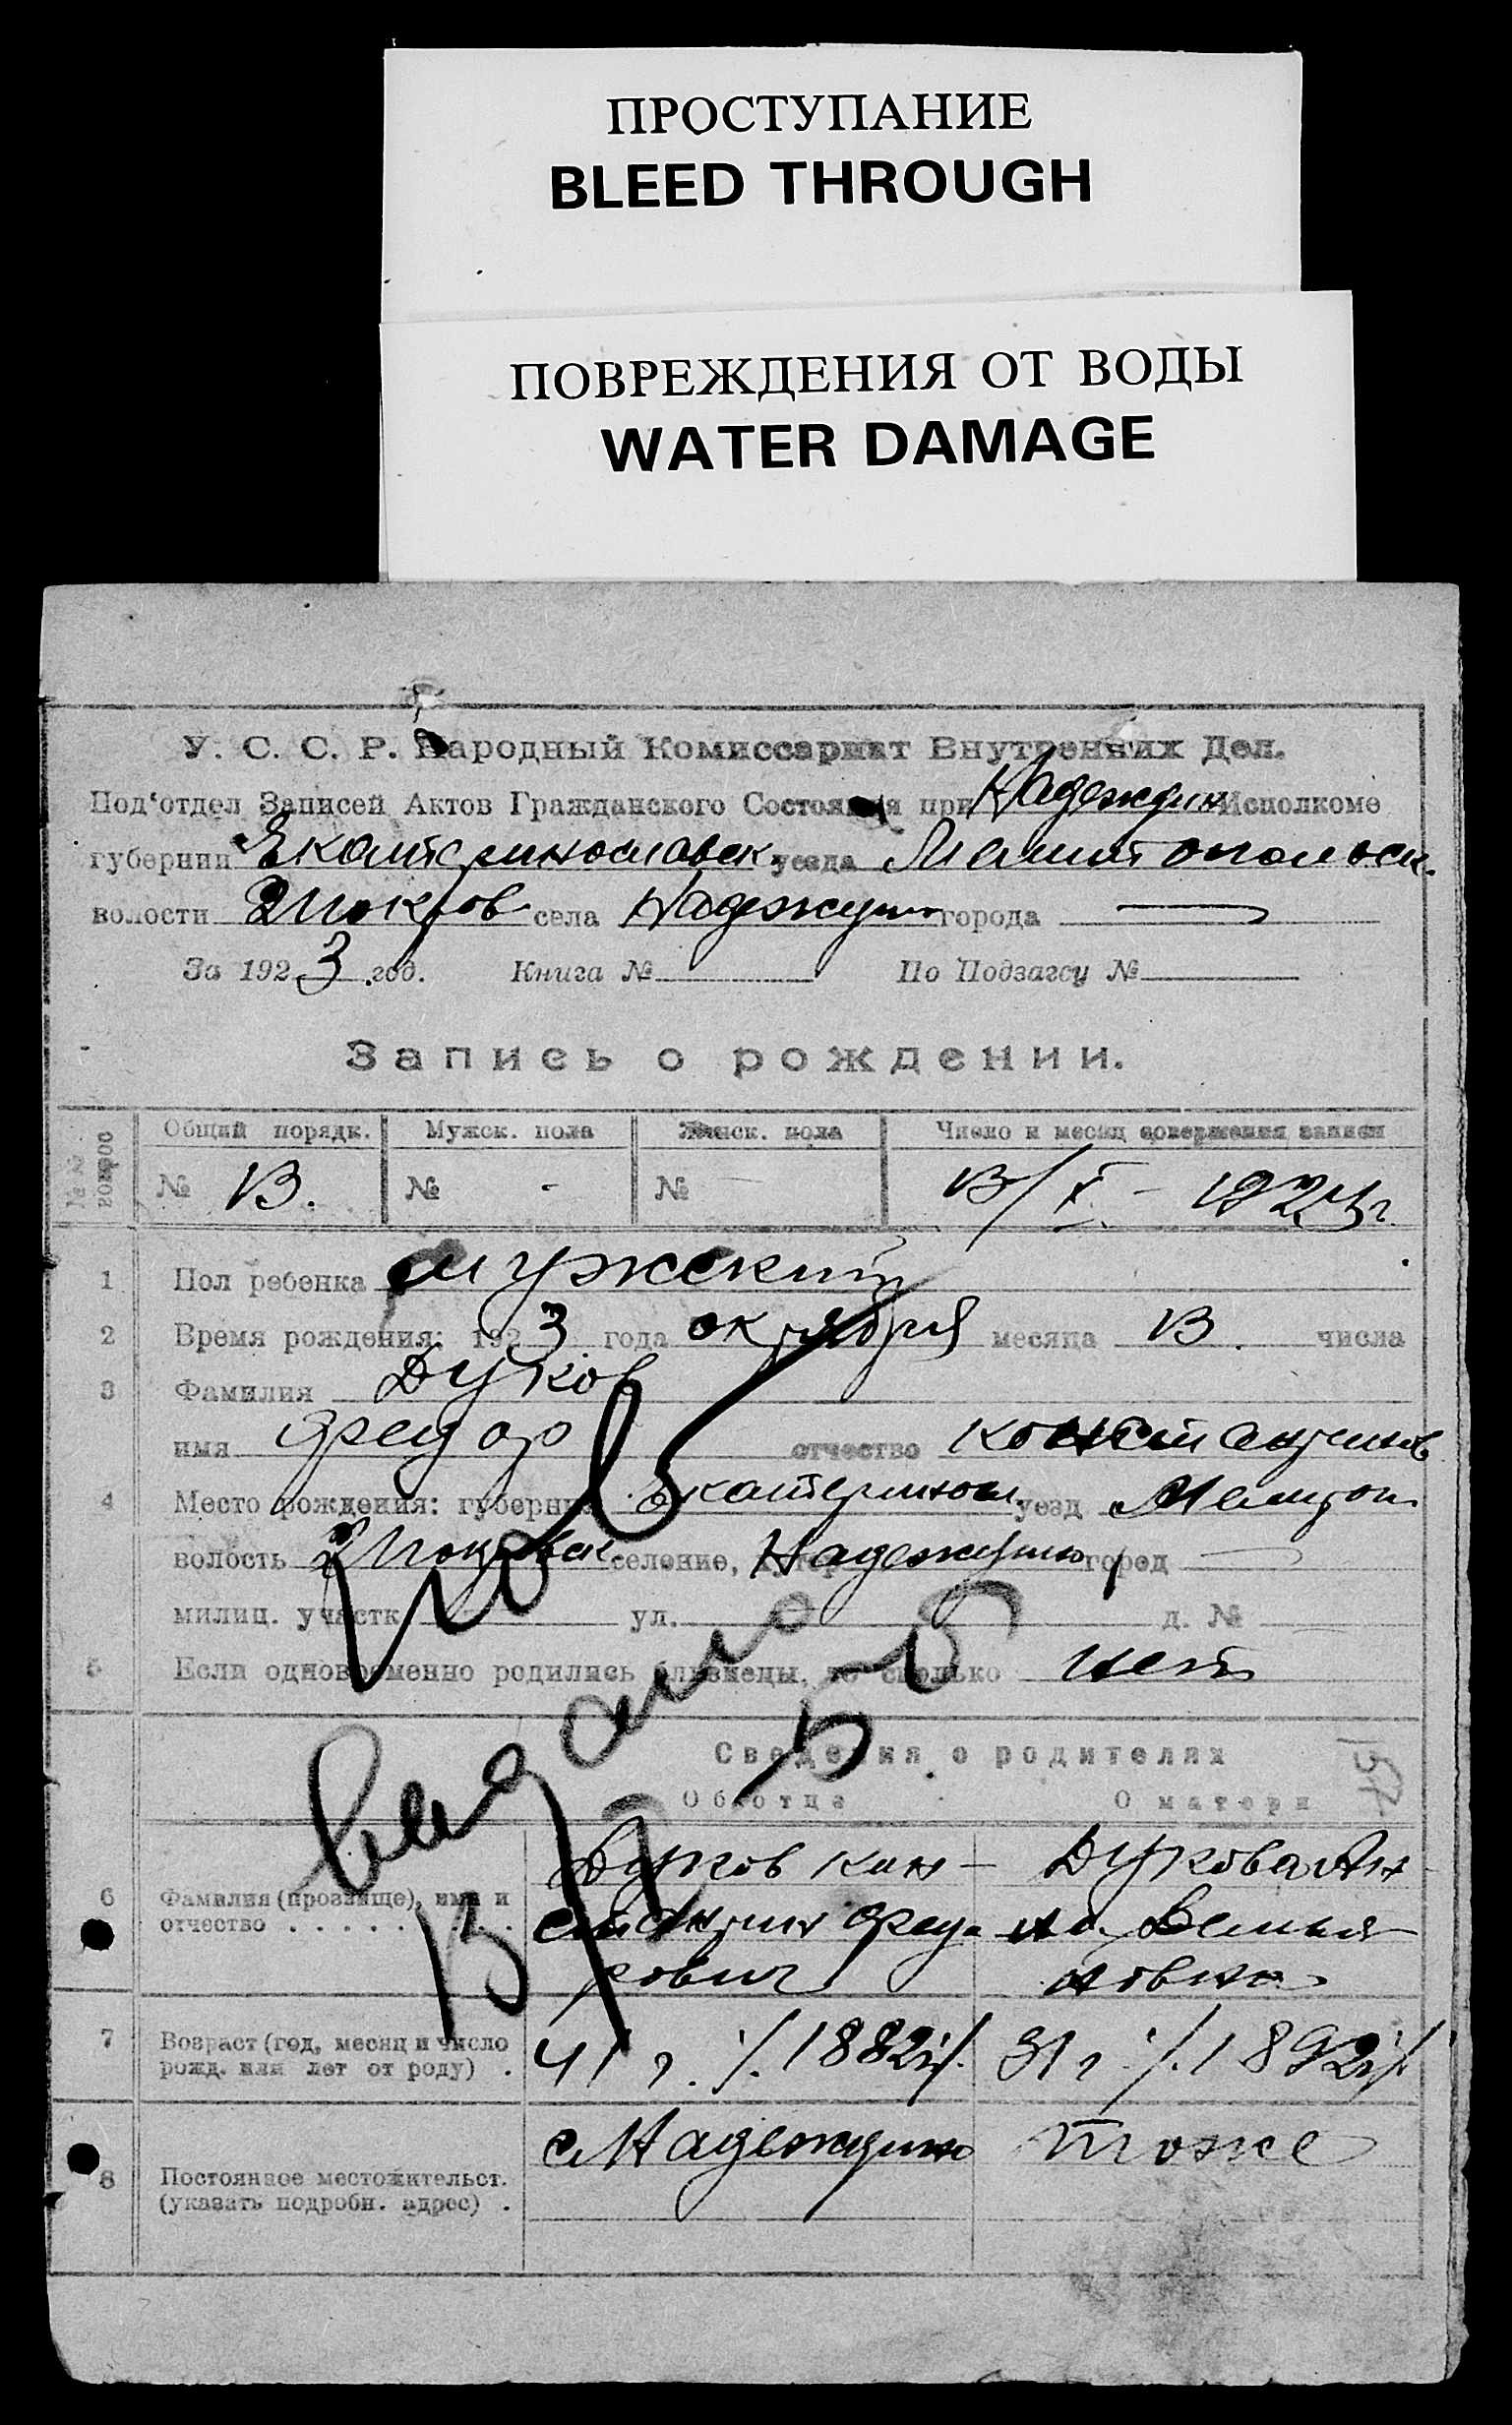 ПРОСТУПАНИЕ
BLEED THROUGH
ПОВРЕЖДЕНИЯ ОТ ВОДЫ
WATER DAMAGE
У. С. С. Р. Народный Комиссариат Внутренних Дел.
Под'отдел Записей Актов Гражданского Состояния при Надеждин Исполкоме
губернии Екатеринославск. уезда Мелитопольск.
волости 2 Покров села Надеждино города —
За 1923 год. Книга № По Подзагсу №
Запись о рождении.
№№ вопрос Общий порядк. Мужск. пола Женск. пола Число и месяц совершения записи
№ 13. № - № 13/X - 1923 г.
1 Пол ребенка мужский
2 Время рождения: 1923 года октября месяца 13 числа
3 Фамилия Дуков
имя Федор отчество Константинов
4 Место рождения: губерния Екатеринosл. уезд Мелитоп.
волость 2 Покровск. селение, хутор Надеждино город —
милиц. участк. ул. д. №
5 Если одновременно родились близнецы, то сколько нет
Выдано
Сведения о родителях
157
Об отце О матери
6 Фамилия (прозвище), имя и отчество Дуков Кон-стантин Федорович Дукова Анна Демьяновна
7 Возраст (год, месяц и число рожд. или лет от роду) 41 г. /1882/ 31 г. /1892/
8 Постоянное местожительст. (указать подробн. адрес) с. Надеждино тоже